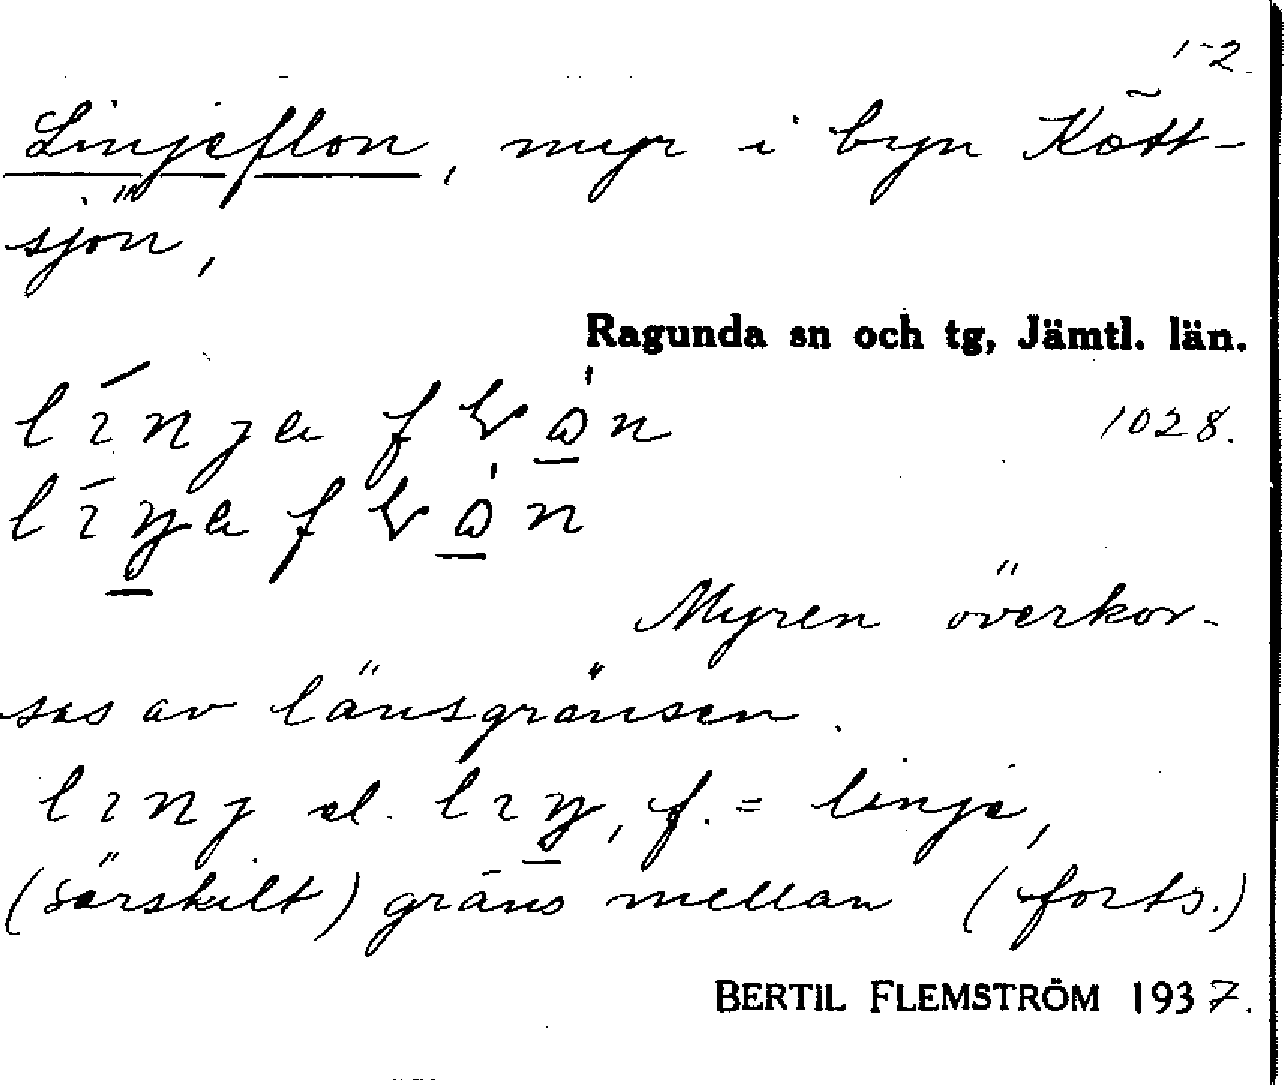 1-2
Linjeflon, myr i byn Kött-
sjön,
Ragunda sn och tg, Jämtl. län.
1028.
Myren överkor-
sas av länsgränsen.
linj el. , f. = linje,
(särskilt) gräns mellan (forts.)
BERTIL FLEMSTRÖM 1937.